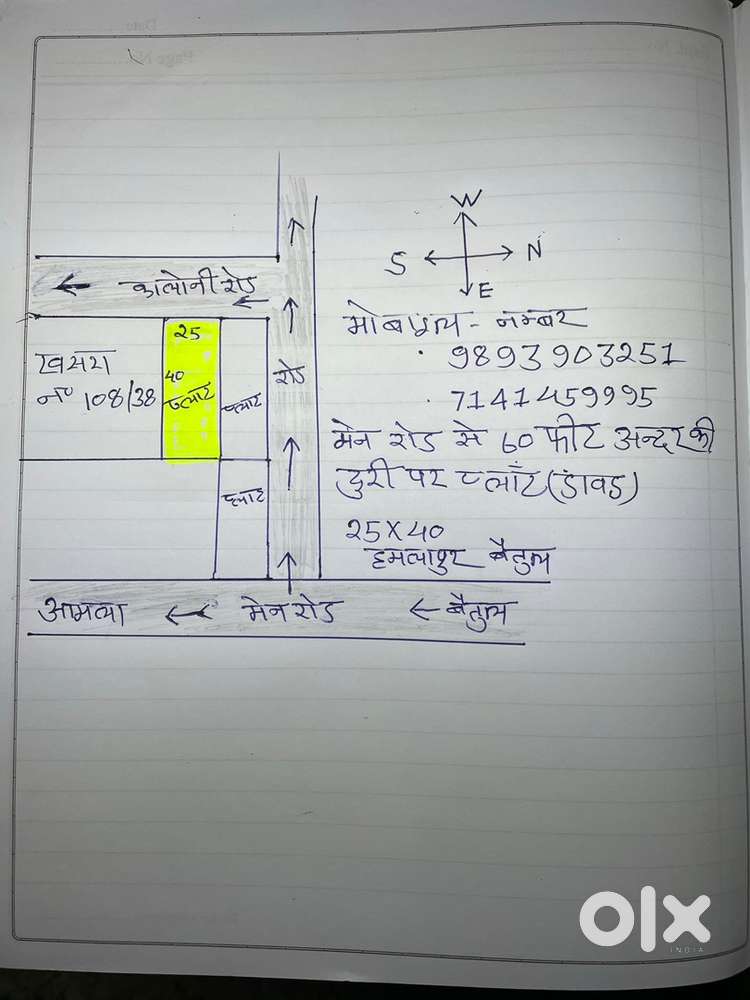 Date
Page No.
W
S
N
E
कालोनी रोड
मोबाइल - नम्बर
9893903251
7141459995
खसरा
न० 108/38
25
40
प्लाट
प्लाट
रोड
मेन रोड से 60 फीट अन्दर की
दुरी पर प्लॉट (डावर्ड)
प्लाट
25X40
हमलापुर बैतुल
आमला
मेन रोड
बैतुल
olx
INDIA